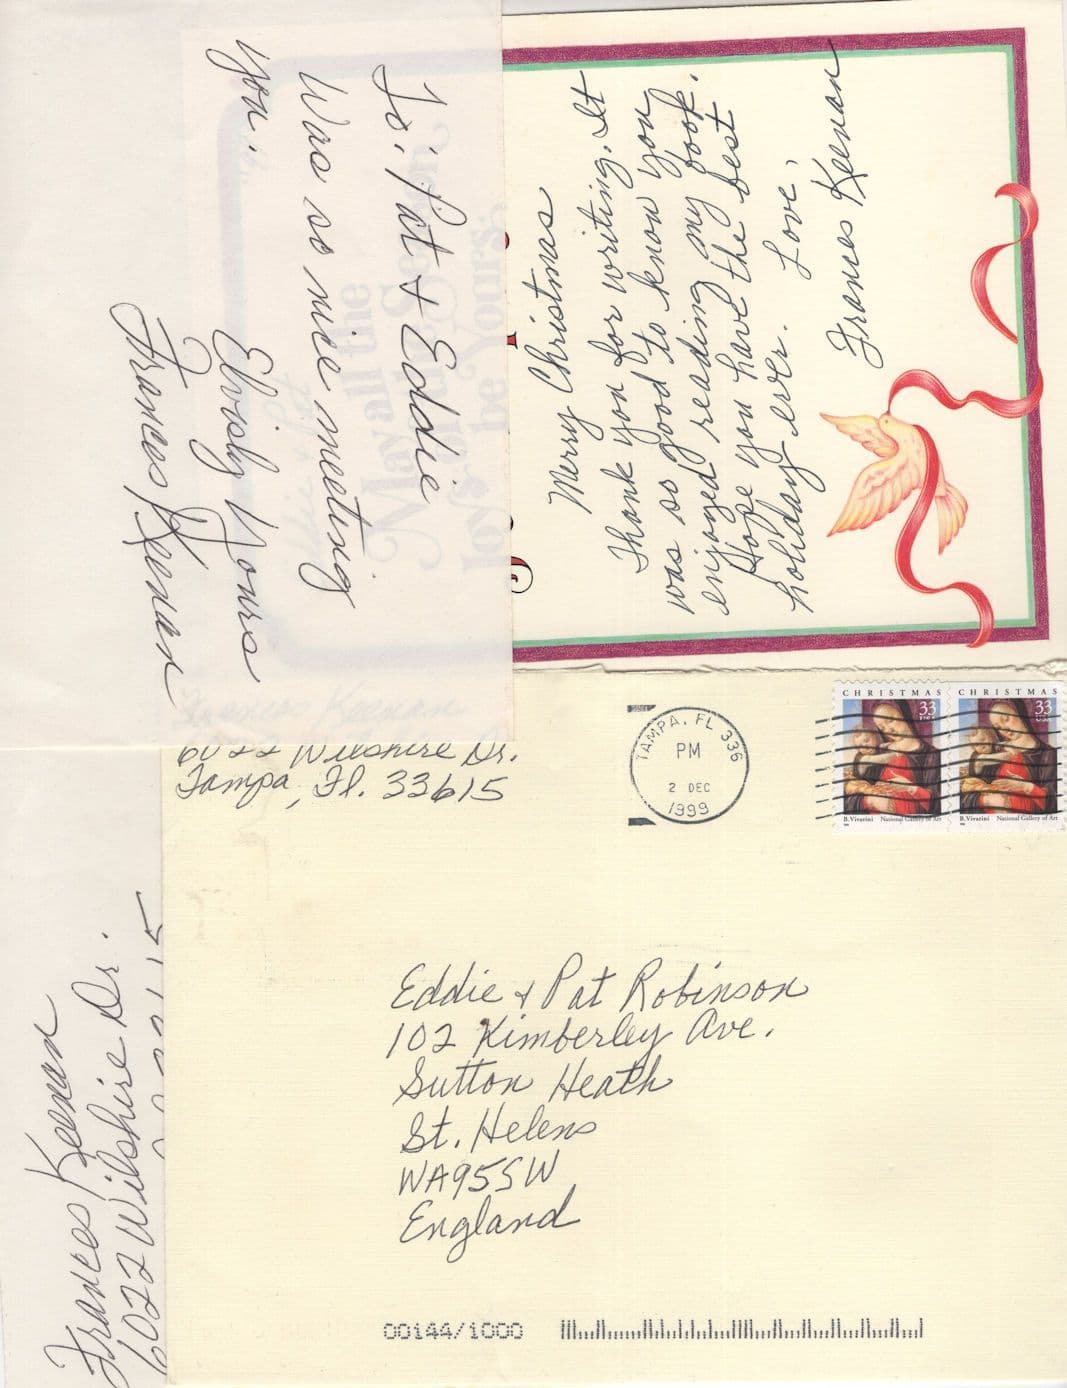 To: Pat & Eddie
Was so nice meeting
you.
Elvisly Yours
Frances Keenan
May all the
Joys
be Yours.
Merry Christmas
Thank you for writing. It
was so good to know you
enjoyed reading my book.
Hope you have the best
holiday ever. Love,
Frances Keenan
Frances Keenan
6022 Wilshire Dr.
Tampa, Fl. 33615
TAMPA, FL 336
PM
2 DEC
1999
CHRISTMAS
33
USA
B.Vivarini National Gallery of Art
CHRISTMAS
33
USA
B.Vivarini National Gallery of Art
Eddie & Pat Robinson
102 Kimberley Ave.
Sutton Heath
St. Helens
WA95SW
England
00144/1000
Frances Keenan
6022 Wilshire Dr.